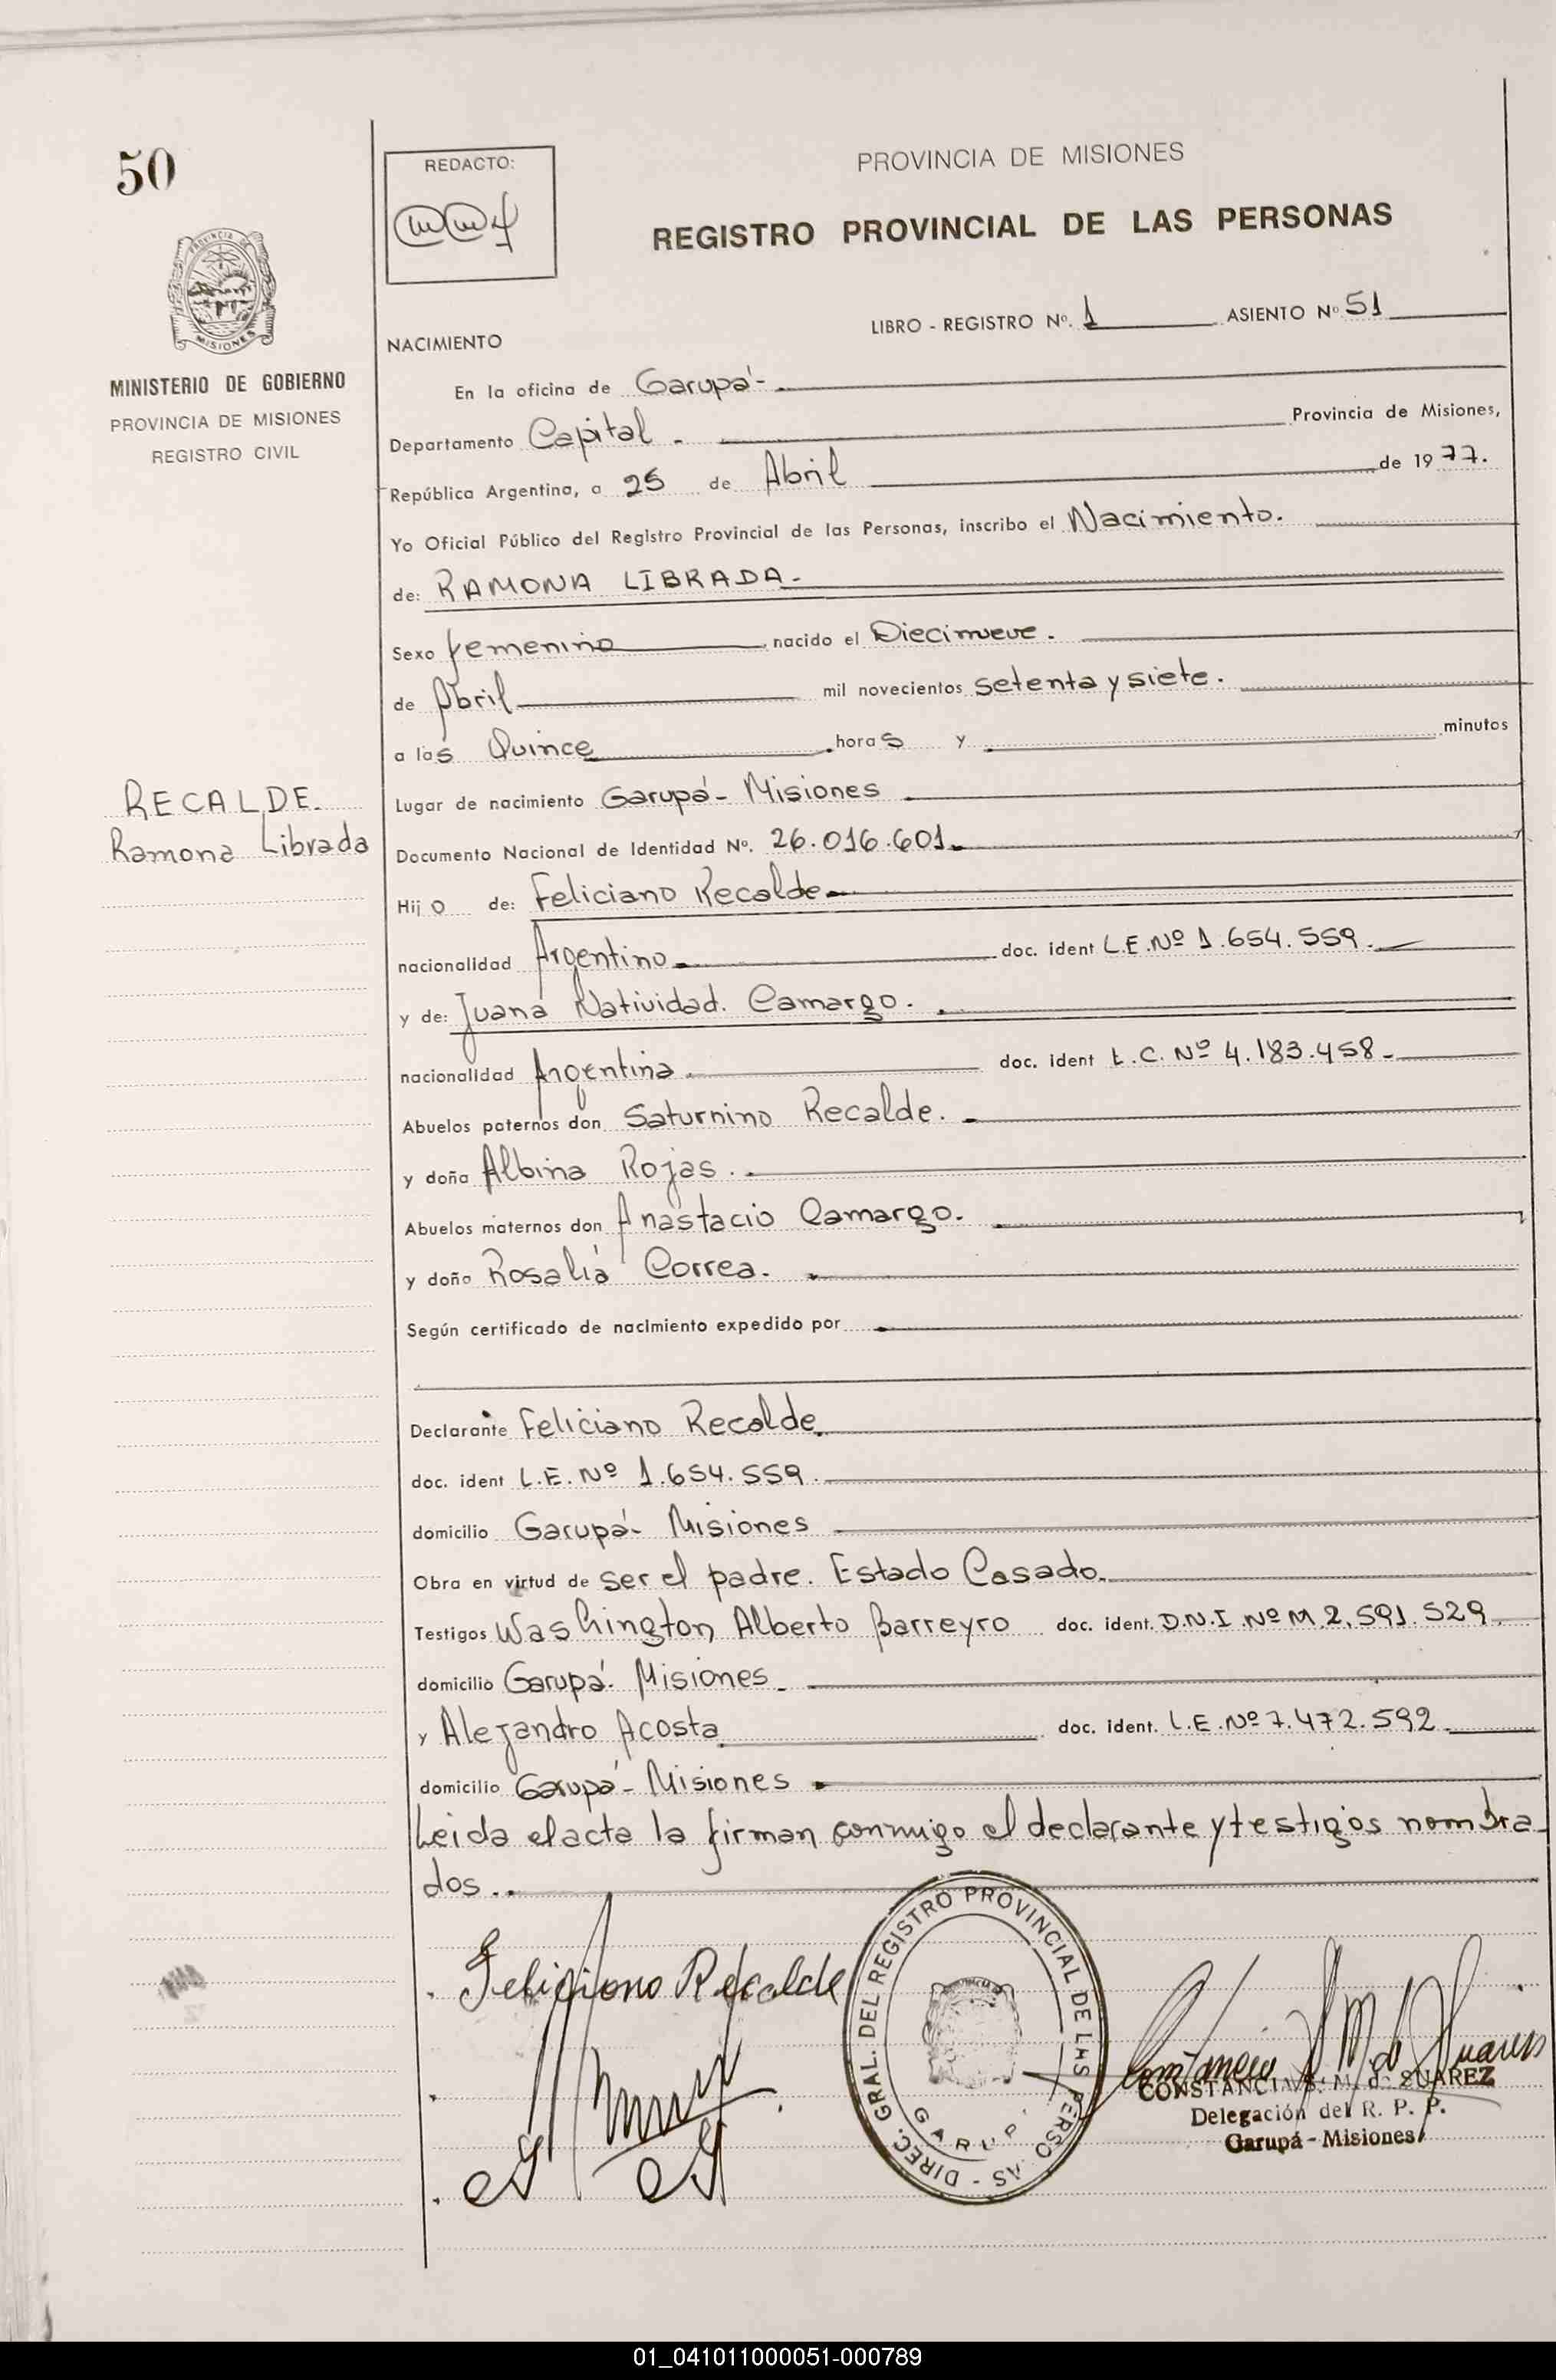 50
REDACTO:
PROVINCIA DE MISIONES
REGISTRO PROVINCIAL DE LAS PERSONAS
PROVINCIA DE
MISIONES
MINISTERIO DE GOBIERNO
PROVINCIA DE MISIONES
REGISTRO CIVIL
LIBRO - REGISTRO Nº. 1 ASIENTO Nº 51
NACIMIENTO
En la oficina de Garupá -
Departamento Capital - Provincia de Misiones,
República Argentina, a 25 de Abril de 1977.
Yo Oficial Público del Registro Provincial de las Personas, inscribo el Nacimiento.
de: RAMONA LIBRADA -
Sexo femenino nacido el Diecinueve.
de Abril mil novecientos setenta y siete.
a las Quince horas y minutos
RECALDE.
Ramona Librada
Lugar de nacimiento Garupá - Misiones
Documento Nacional de Identidad Nº. 26.016.601
Hijo de: Feliciano Recalde
nacionalidad Argentino doc. ident L.E. Nº 1.654.559.
y de: Juana Natividad. Camargo.
nacionalidad Argentina. doc. ident L.C. Nº 4.183.458-
Abuelos paternos don Saturnino Recalde.
y doña Albina Rojas.
Abuelos maternos don Anastacio Camargo.
y doña Rosalia Correa.
Según certificado de nacimiento expedido por
Declarante Feliciano Recalde
doc. ident L.E. Nº 1.654.559.
domicilio Garupá - Misiones
Obra en virtud de ser el padre. Estado Casado.
Testigos Washington Alberto Barreyro doc. ident. D.N.I. Nº M. 2.591.529
domicilio Garupá. Misiones
y Alejandro Acosta doc. ident. L.E. Nº 7.472.592
domicilio Garupá - Misiones
Leida el acta la firman conmigo el declarante y testigos nombra-
dos..
Feliciano Recalde
DIREC. GRAL. DEL REGISTRO PROVINCIAL DE LAS PERSO AS -
GARUP
CONSTANCIA S. M. de SUAREZ
Delegación del R. P. P.
Garupá - Misiones
01_041011000051-000789